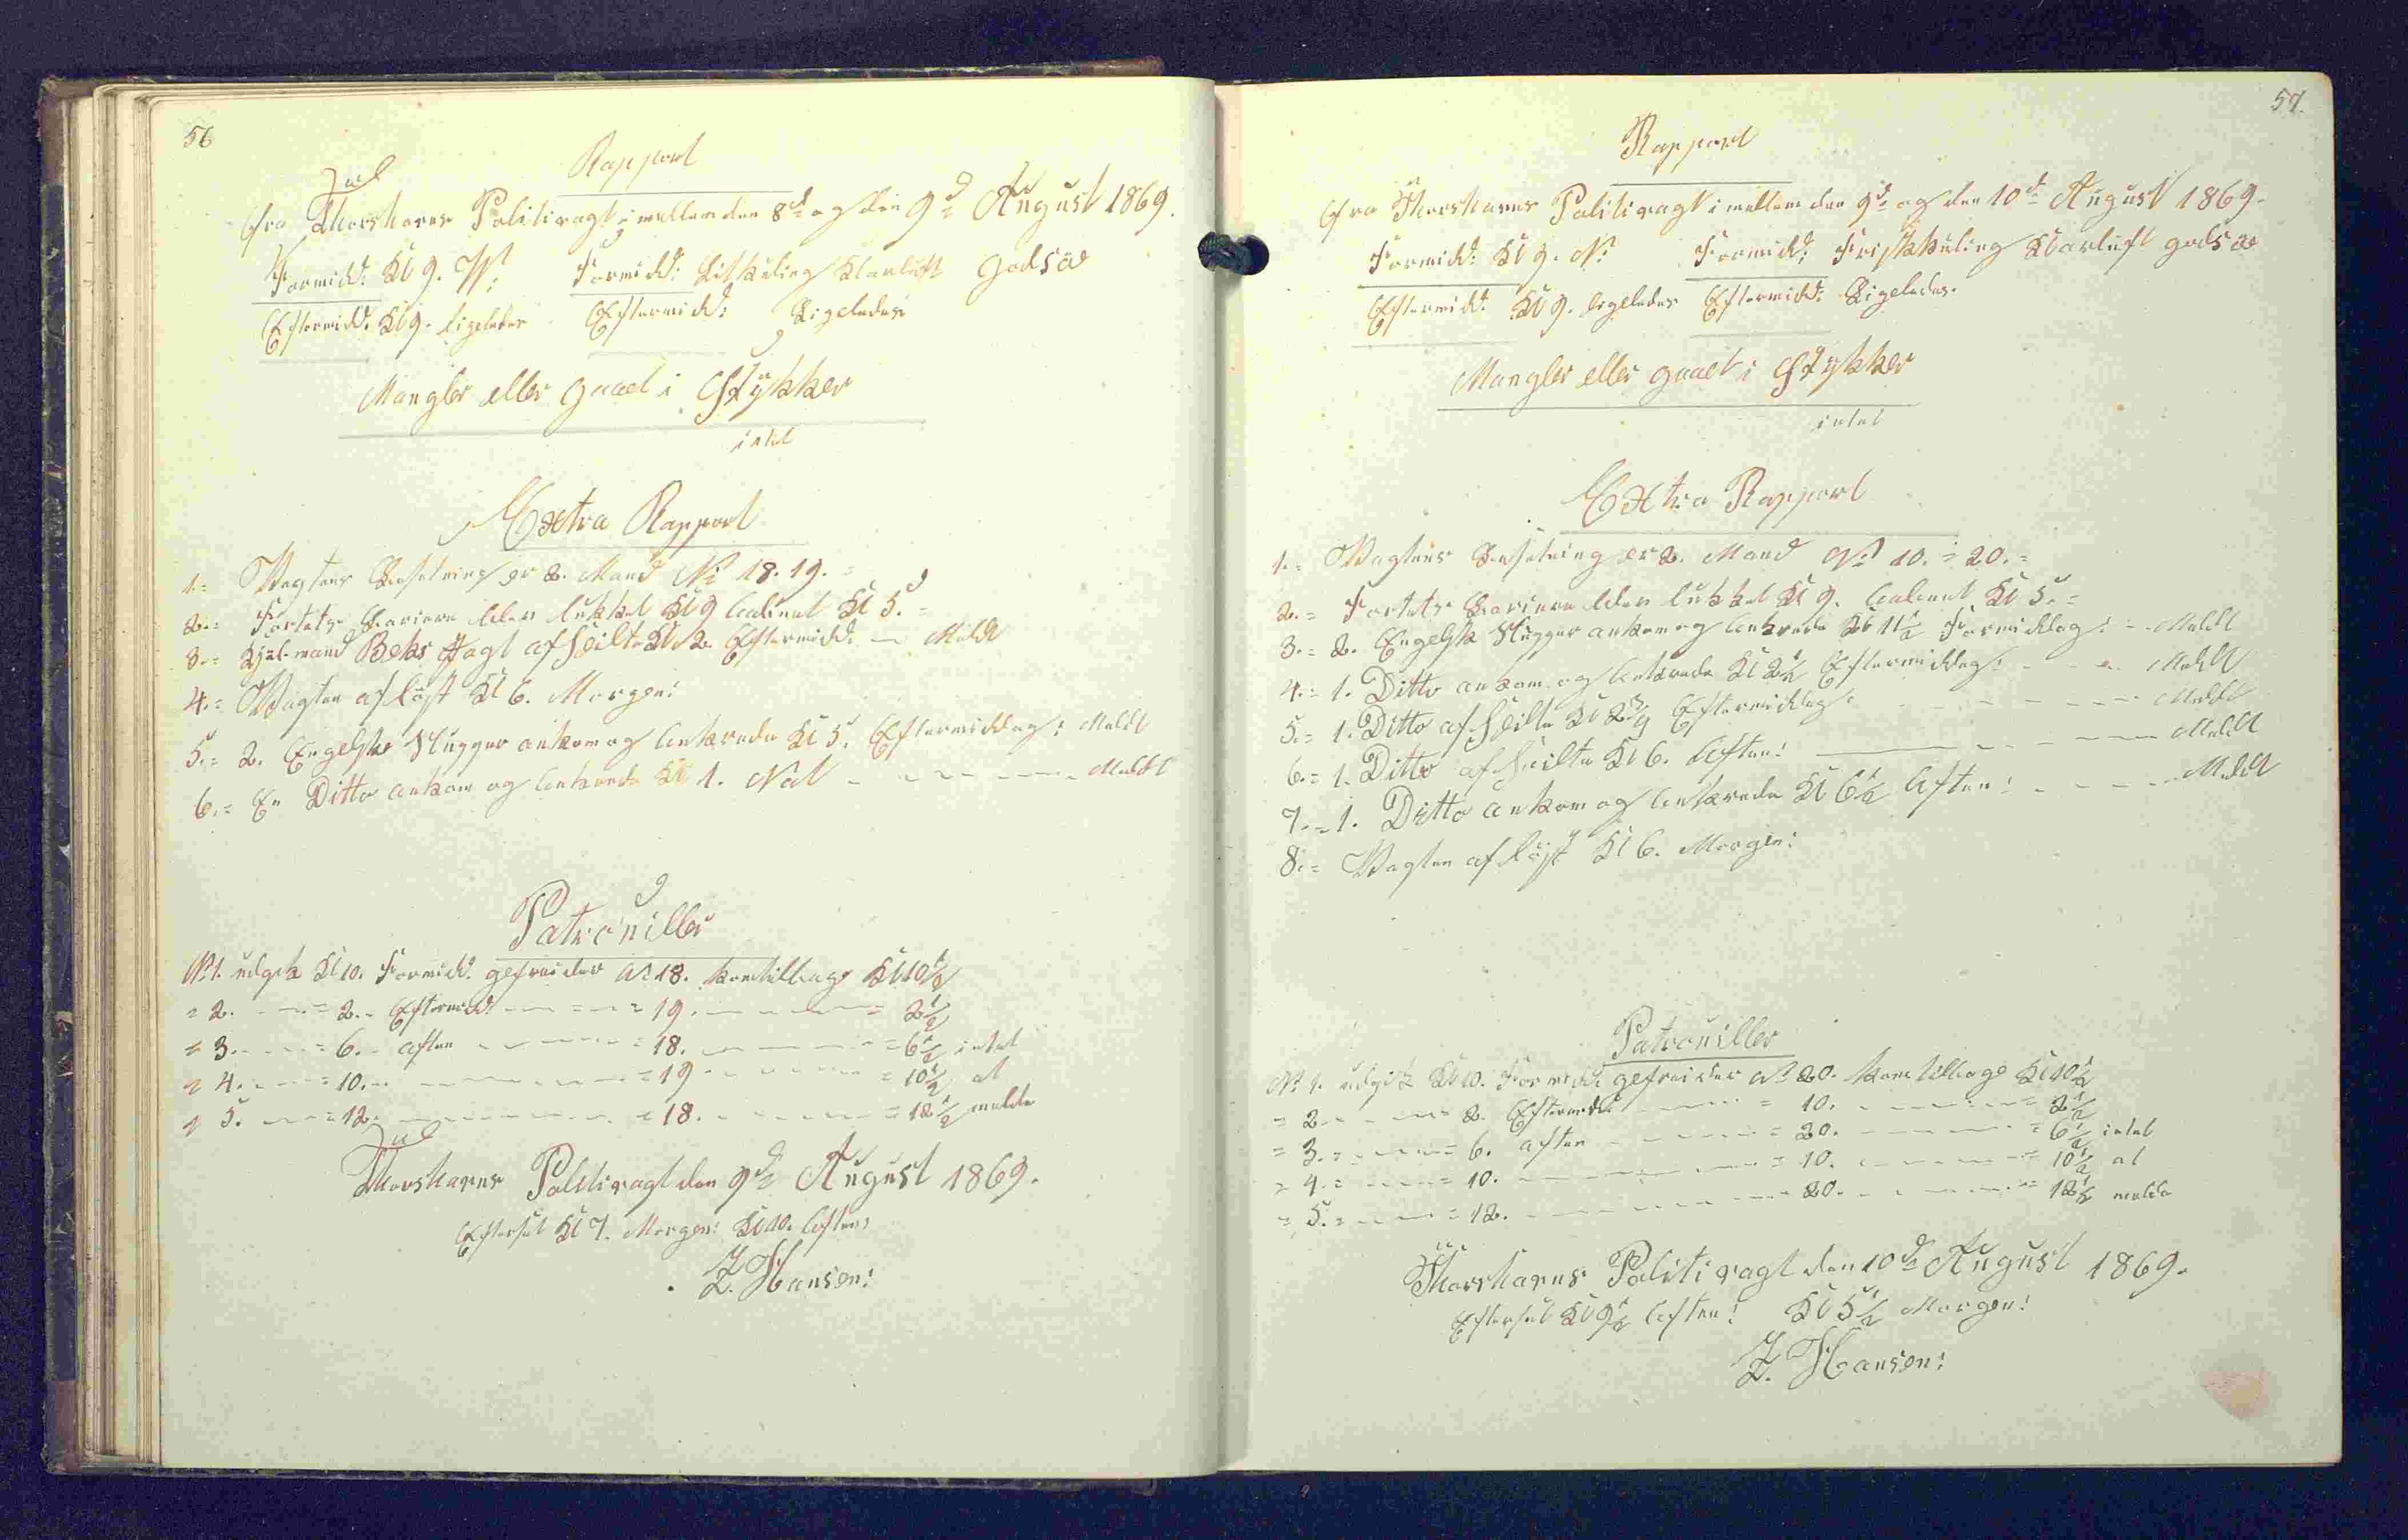 56
Rapport
fra Thorshavns Politivagt imellem den 8de og den 9de August 1869.
Formidd: Kl 9. W: Formidd: Litkuling Klarluft godsøe
Eftermidd: Kl 9. ligeledes Eftermidd: Ligeledes
Mangler eller gaaet i Stykker
intet
Extra Rapport
1.= Vagtens Besetning er 2. Mand No 18. 19. =
2.= Fortets Bariere blev lukket Kl 9 aabnet Kl 5. =
3.= Kjøbmand Beks Jagt afseilte Kl 2. Eftermidd. — Meldt
4.= Vagten afløst Kl 6. Morgen:
5.= 2. Engelske Slupper ankom og ankrede Kl 5. Eftermiddag: Meldt
6.= En Ditto ankom og ankrede Kl 1. Nat - - - - Meldt
Patrouiller
No 1. udgik Kl 10. Formidd. gefreider No 18. kom tilbage Kl 10½
= 2. - - = 2. - Eftermidd: - - = 19. - - - = 2½
= 3. - - = 6. - aften - - - = 18. - - - = 6½ intet
= 4. - - = 10. - - - - = 19 - - - = 10½ at
= 5. - - = 12. - - - - = 18. - - - = 12½ melde
Thorshavns Politivagt den 9de August 1869.
Efterset Kl 7. Morgen: Kl 10. Aften:
Z. Hansen:
57.
Rapport
fra Thorshavns Politivagt imellem den 9de og den 10de August 1869.
Formidd: Kl 9. N: Formidd: Friskkuling Klarluft godsøe
Eftermidd: Kl 9. ligeledes Eftermidd: Ligeledes.
Mangler eller gaaet i Stykker
intet
Extra Rapport
1.= Vagtens Besetning er 2. Mand No 10. = 20. =
2.= Fortets Bariere blev lukket Kl 9. aabnet Kl 5. =
3.= 2. Engelsk Slupper ankom og ankrede Kl 11½ Formiddag: - - Meldt
4.= 1. Ditto ankom og ankrede Kl 2½ Eftermiddag: - - - Meldt
5.= 1. Ditto afseilte Kl 2¾ Eftermiddag: - - - - Meldt
6.= 1. Ditto afseilte Kl 6. Aften: - - - - Meldt
7.= 1. Ditto ankom og ankrede Kl 6½ Aften: - - - Meldt
8.= Vagten afløst Kl 6. Morgen:
Patrouiller
No 1. udgik Kl 10. Formidd: gefreider No 20. kom tilbage Kl 10½
= 2. - - - 2. Eftermidd: - - - = 10. - - - = 2½
= 3. = - - = 6. aften - - - = 20. - - - = 6½ intet
= 4. = - - = 10. - - - - = 10. - - - = 10½ at
= 5. = - - = 12. - - - - 20. - - - = 12½ melde
Thorshavns Politivagt den 10de August 1869.
Efterset Kl 9½ Aften: Kl 5½ Morgen:
Z. Hansen: